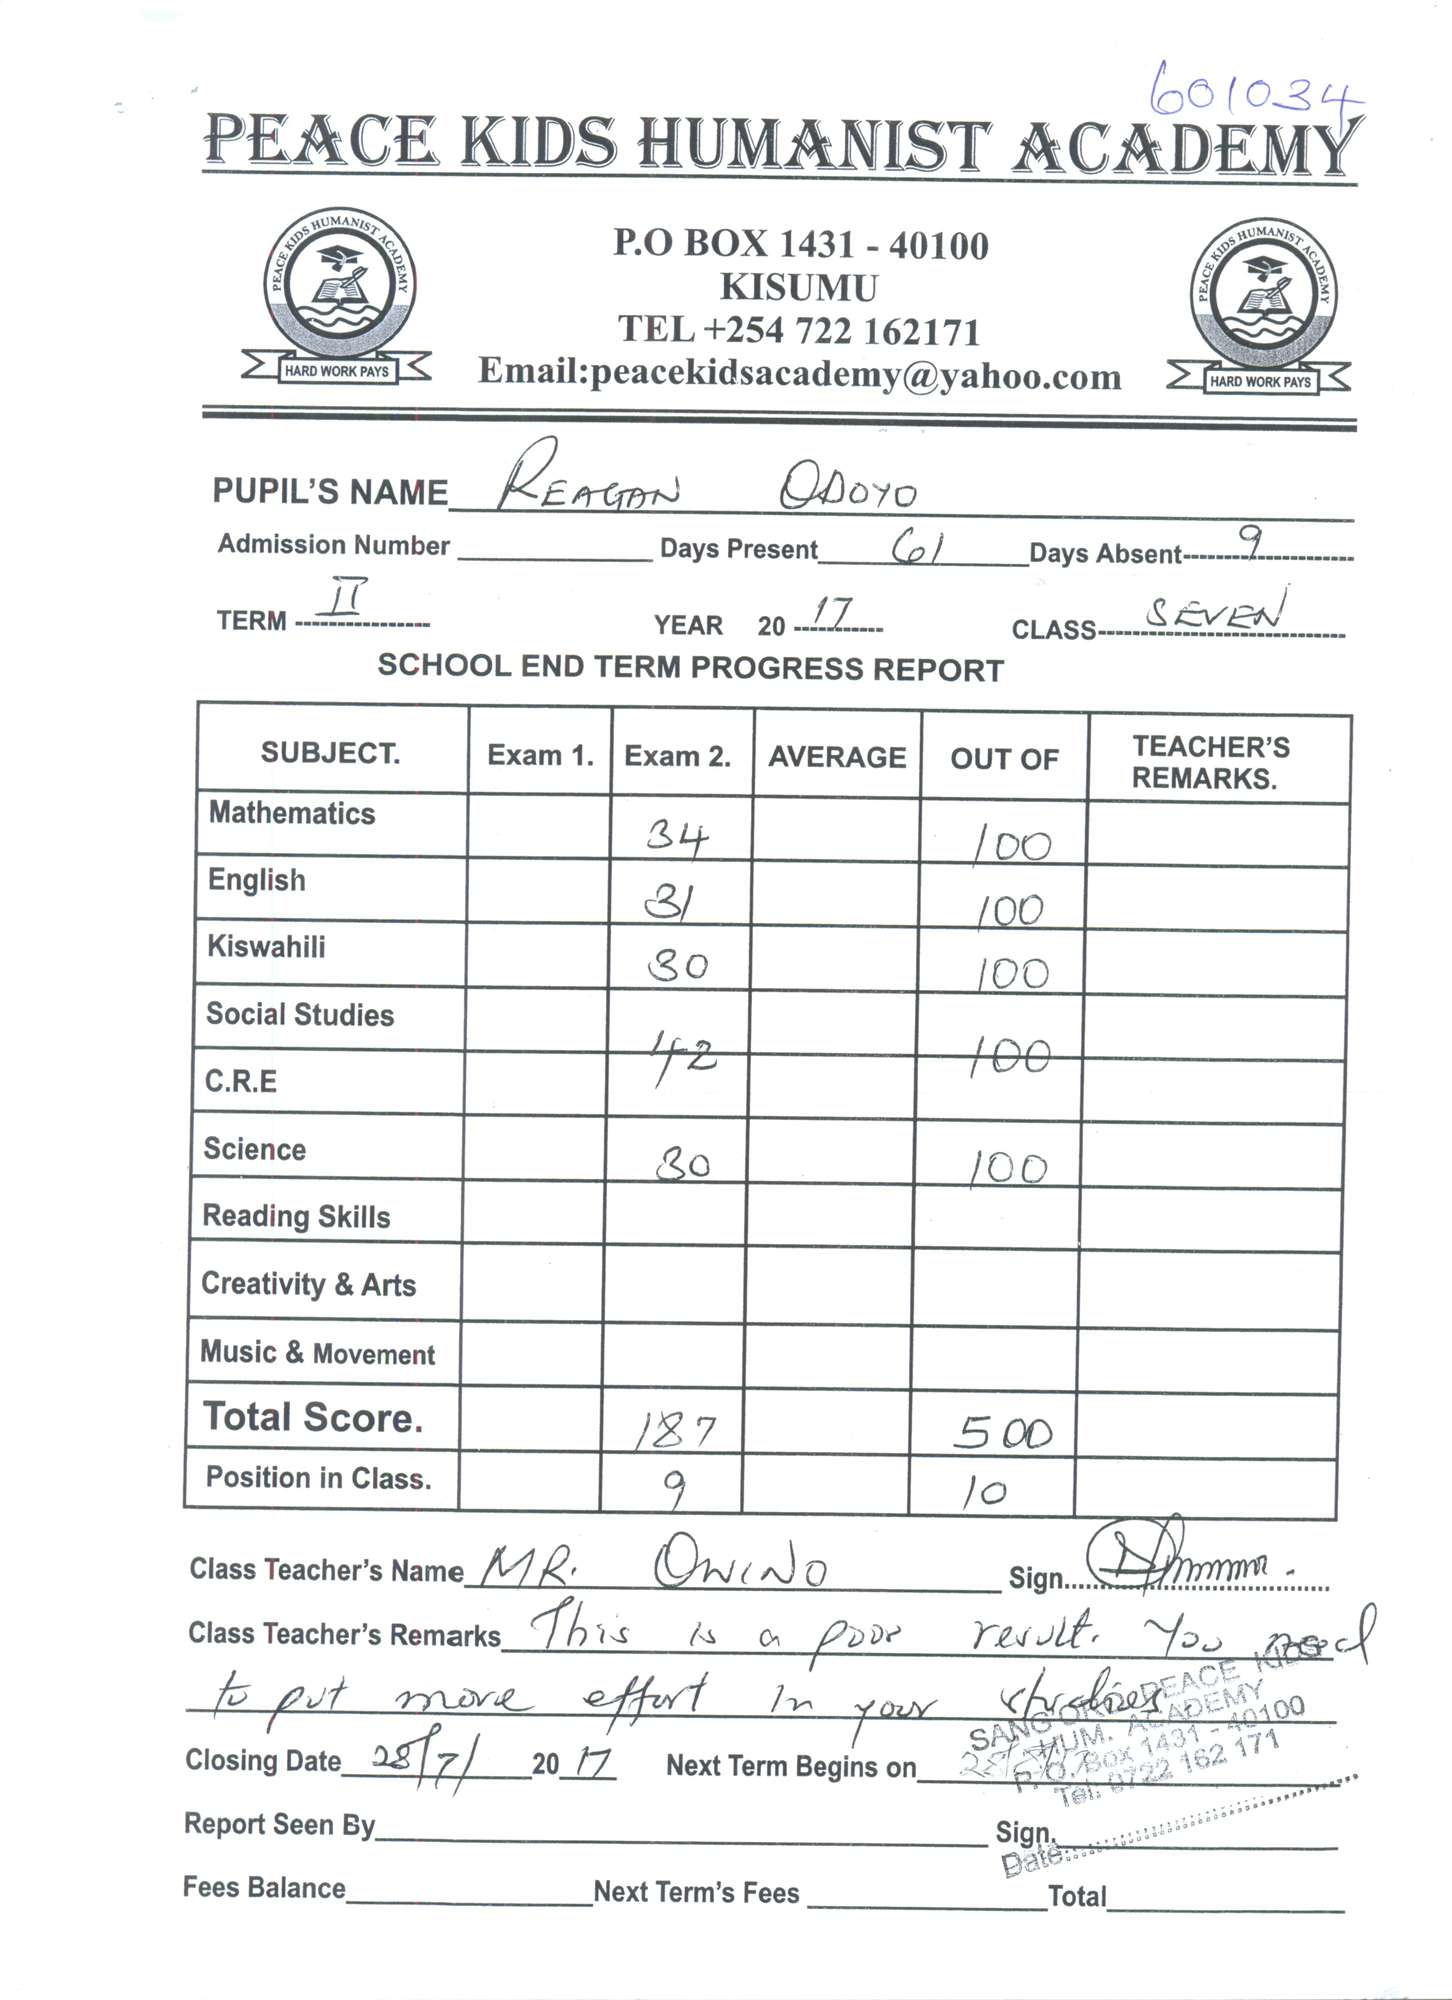 601034
PEACE KIDS HUMANIST ACADEMY
PEACE KIDS HUMANIST ACADEMY
HARD WORK PAYS
P.O BOX 1431 - 40100
KISUMU
TEL +254 722 162171
Email:peacekidsacademy@yahoo.com
PEACE KIDS HUMANIST ACADEMY
HARD WORK PAYS
PUPIL'S NAME REAGAN ODOYO
Admission Number Days Present 61 Days Absent 9
TERM II YEAR 20 17 CLASS SEVEN
SCHOOL END TERM PROGRESS REPORT
SUBJECT. Exam 1. Exam 2. AVERAGE OUT OF TEACHER'S REMARKS.
Mathematics 34 100
English 31 100
Kiswahili 30 100
Social Studies
42 100
C.R.E
Science 30 100
Reading Skills
Creativity & Arts
Music & Movement
Total Score. 187 500
Position in Class. 9 10
Class Teacher's Name MR. OWINO Sign.
Class Teacher's Remarks This is a poor result. You need
to put more effort in your studies
Closing Date 28/7/ 20 17 Next Term Begins on
SANG'ORO PEACE KIDS
HUM. ACADEMY
P. O. Box 1431 - 40100
Tel: 0722 162 171
Report Seen By Sign.
Date:
Fees Balance Next Term's Fees Total